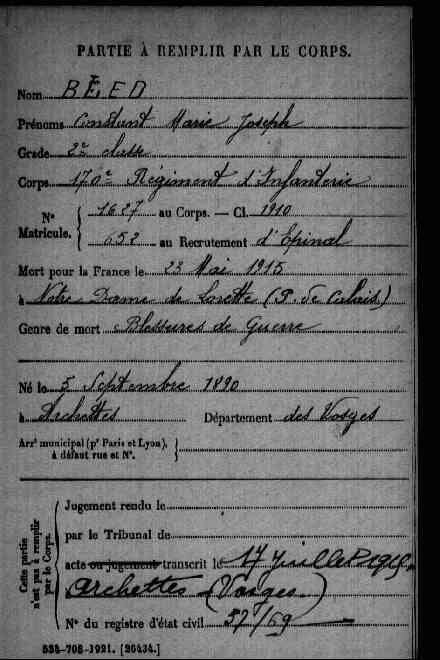 PARTIE À REMPLIR PAR LE CORPS.
Nom BÉED
Prénoms Constant Marie Joseph
Grade 2e classe
Corps 170e Régiment d'Infanterie
Nº Matricule. { 1627 au Corps. — Cl. 1910
652 au Recrutement d'Epinal
Mort pour la France le 23 Mai 1915
à Notre Dame de Lorette (P. de Calais)
Genre de mort Blessures de Guerre
Né le 5 Septembre 1890
à Archettes Département des Vosges
Arrt municipal (pr Paris et Lyon), }
à défaut rue et Nº.
Cette partie n'est pas à remplir par le Corps.
Jugement rendu le
par le Tribunal de
acte ou jugement transcrit le 17 Juillet 1915
Archettes (Vosges)
Nº du registre d'état civil 37/69
533-708-1921. [26434.]